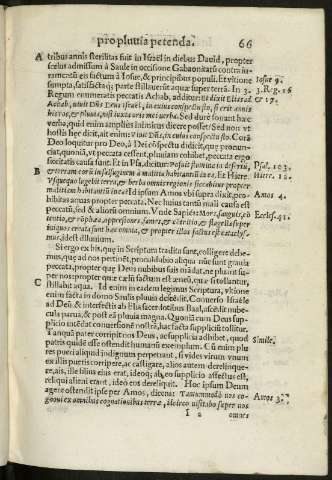 pro pluuia petenda. 66
A tribus annis sterilitas fuit in Israel in diebus Dauid, propter
scelus admissum à Saule in occisione Gabaonitarū contra iu-
ramentū eis factum à Iosue, & principibus populi. Et vltione Iosue 9.
sumpta, satisfactaq; parte stillauerūt aquæ super terrā. In 3. 3. Reg. 16
Regum enumeratis peccatis Achab, additur: Et dixit Elias ad & 17.
Achab, viuit Dñs Deus Israel, in cuius conspectu sto, si erit annis
his ros, & pluuia, nisi iuxta oris mei verba. Sed dure sonant hæc
verba, quid enim amplius inimicus dicere posset? Sed non vt
hostis hęc dicit, ait enim: Viuit Dñs, in cuius conspectu sto. Corā
Deo loquitur pro Deo, à Dei cōspectu didicit, quæ pronun-
ciat, quoniā, vt peccata cessent, pluuiam cohibet, peccata ergo
sterilitatis causa sunt. Et in Psa. dicitur: Posuit flumina in desertū, Psal. 103.
B & terram
à malitia habitantiū in ea. Et Hiere. Hiere. 12.
Vsquequo lugebit terra, & herba omnis regionis siccabitur propter
malitiam habitantiū in ea? Id ipsum Amos vbi supra dixit, pro- Amos 4.
hibitas aquas propter peccata. Nec huius tantū mali causa est
peccatū, sed & aliorū omnium. Vnde Sapiēs: Mors, sanguis, cō Eccles. 41.
tentio, & rōphæa, oppressiones, fames, & cōtritio, & flagella super
iniquos creata sunt hæc omnia, & propter illos factus est cataclys-
mus, idest diluuium.
Si ergo ex his, quæ in Scriptura tradita sunt, colligere debe-
mus, quæ ad nos pertinēt, procul dubio aliqua nūc sunt grauia
peccata, propter quæ Deus nubibus suis mādat, ne pluant su-
per nos propter quæ cælū factum est æneū, quæ si tollantur,
C stillabit aqua. Id enim in eadem legimus Scriptura, vltione
enim facta in domo Saulis pluuia descēdit. Conuerso Israële
ad Deū, & interfectis ab Elia sacerdotibus Baal, ascēdit nube-
cula parua, & post eā pluuia magna. Quoniā cum Deus sup-
plicio intēdat conuersionē nostrā, hac facta suppliciū tollitur.
Tanquā pater corripit nos Deus, ac supplicia adhibet, quod Simile.
patris quidē esse ostendit humanū exemplum. Cū enim plu
res pueri aliquid indignum perpetrant, si vides virum vnum
ex illis pueris corripere, ac castigare, alios autem derelinque-
re, ais, ille illius eius erat, ideoq; ab eo supplicio affectus est,
reliqui alieni erant, ideo eos dereliquit. Hoc ipsum Deum
agere ostendit ipse per Amos, dicens: Tantummodo vos co- Amos 3.
gnoui ex omnibus cognationibus terræ, idcirco visitabo super vos
I 2 omnes